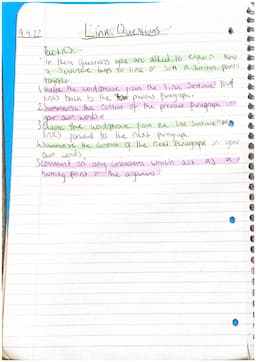 9.4.22
Link Questions
Tactics:
· In these questions you are asked to explain how
a sentence helps to link or join a writers points
together.
1. Quote the word/phrase from the link sentence that
links back to the previous paragraph.
2. Summarise the content of the previous paragraph in
your own words.
3. Quote the word/phrase from the link sentence that
links forward to the next paragraph
4. Summarise the content of the next paragraph in your
own words.
5. Comment on any which act as a
turning point in the argument.